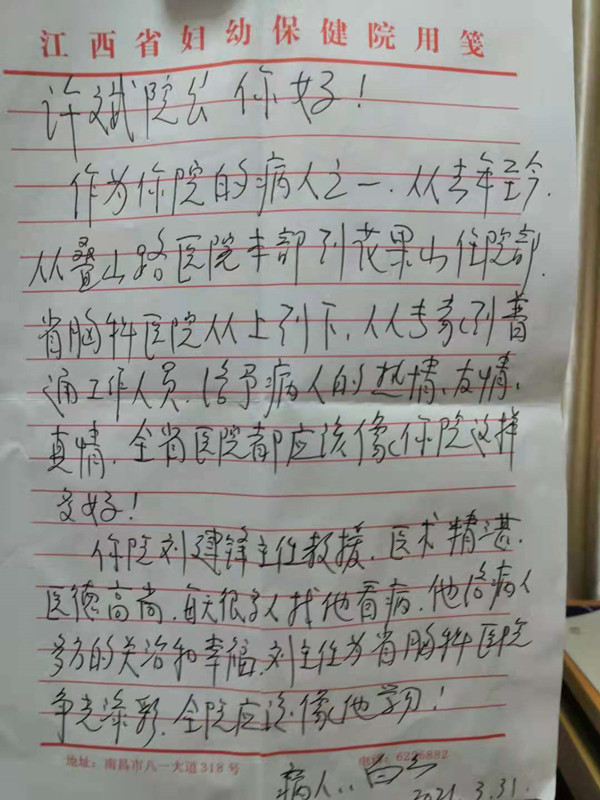 江西省妇幼保健院用笺
许斌院长 你好！
作为你院的病人之一．从去年至今．
从叠山路医院本部到花果山住院部．
省胸科医院从上到下．从专家到普
通工作人员．给予病人的热情、友情、
真情．全省医院都应该像你院这样
多好！
你院刘建锋主任教授．医术精湛．
医德高尚．每天很多人找他看病．他给病人
多方的关治和幸福．刘主任为省胸科医院
争光添彩．全院应该像他学习！
地址：南昌市八一大道318号
电话：6226882
病人：
2021.3.31.